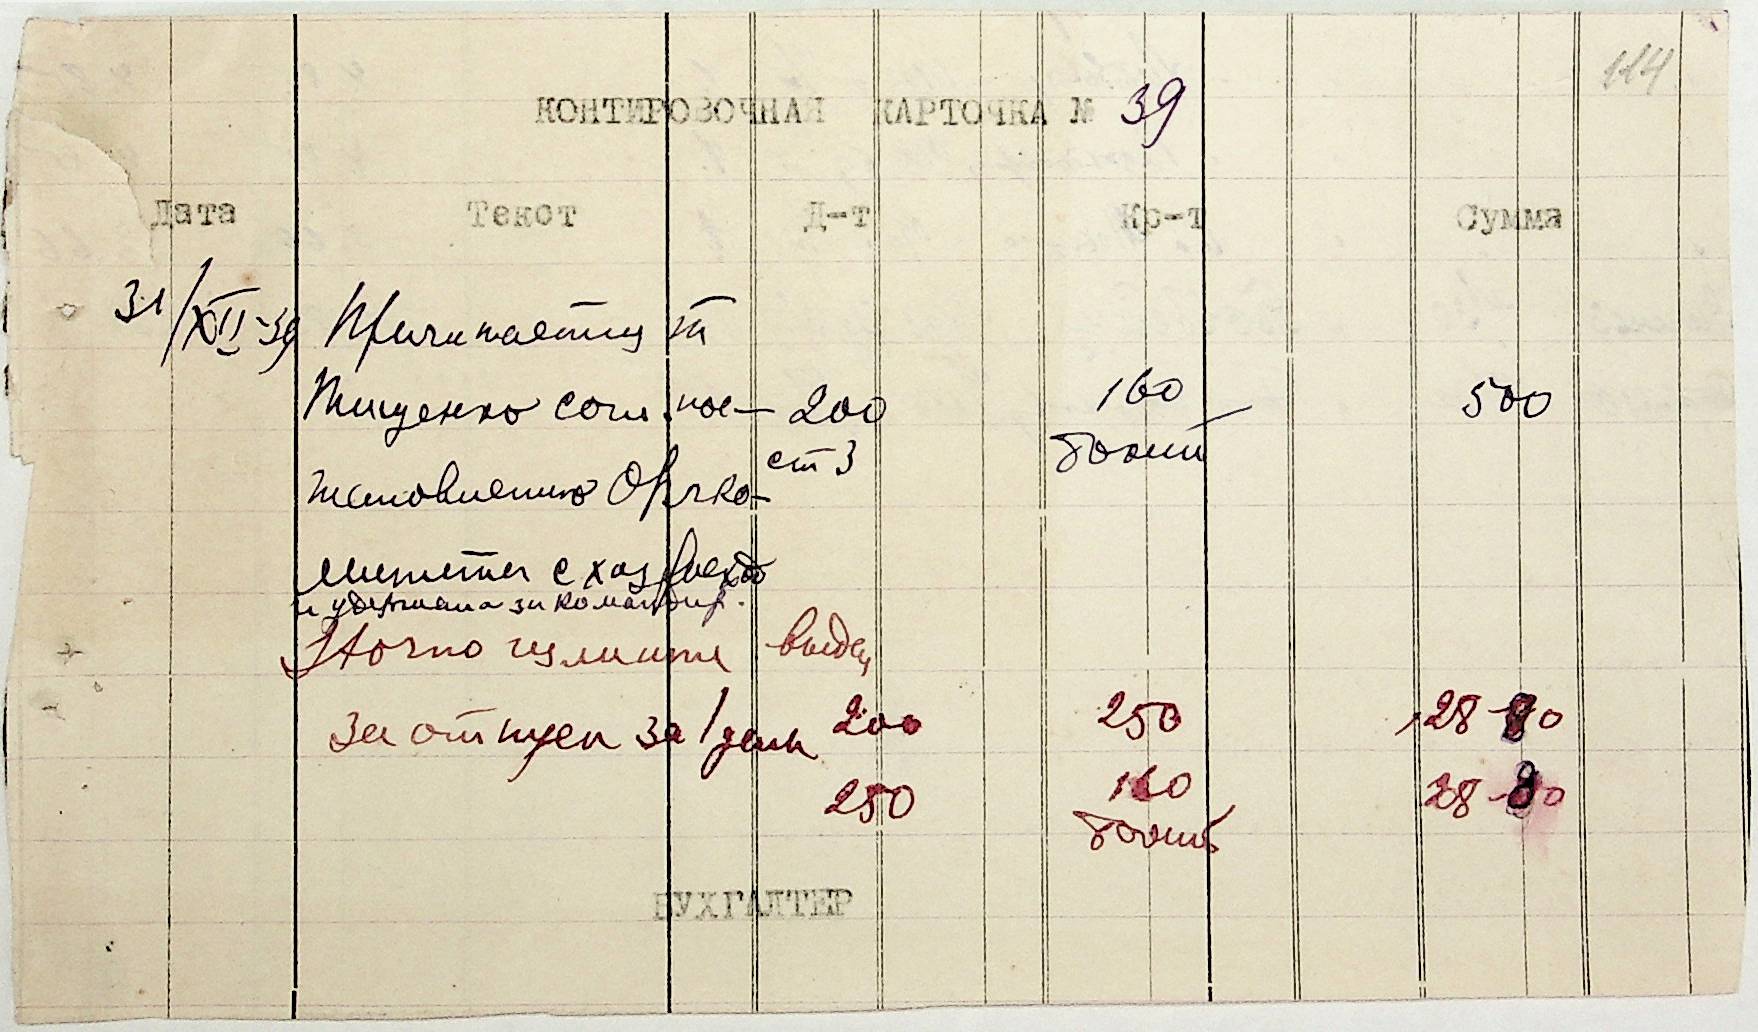 114
КОНТИРОВОЧНАЯ КАРТОЧКА № 39
Дата Текст Д-т Кр-т Сумма
31/XII-39 Причитается т
Тищенко согл. пос- 200 160 500
тановлению Оргко- ст 3
митета с хоз
и удержана за командир.
выдан
за отпуск за 1 день 200 250 28-80
250 160 28-80
БУХГАЛТЕР